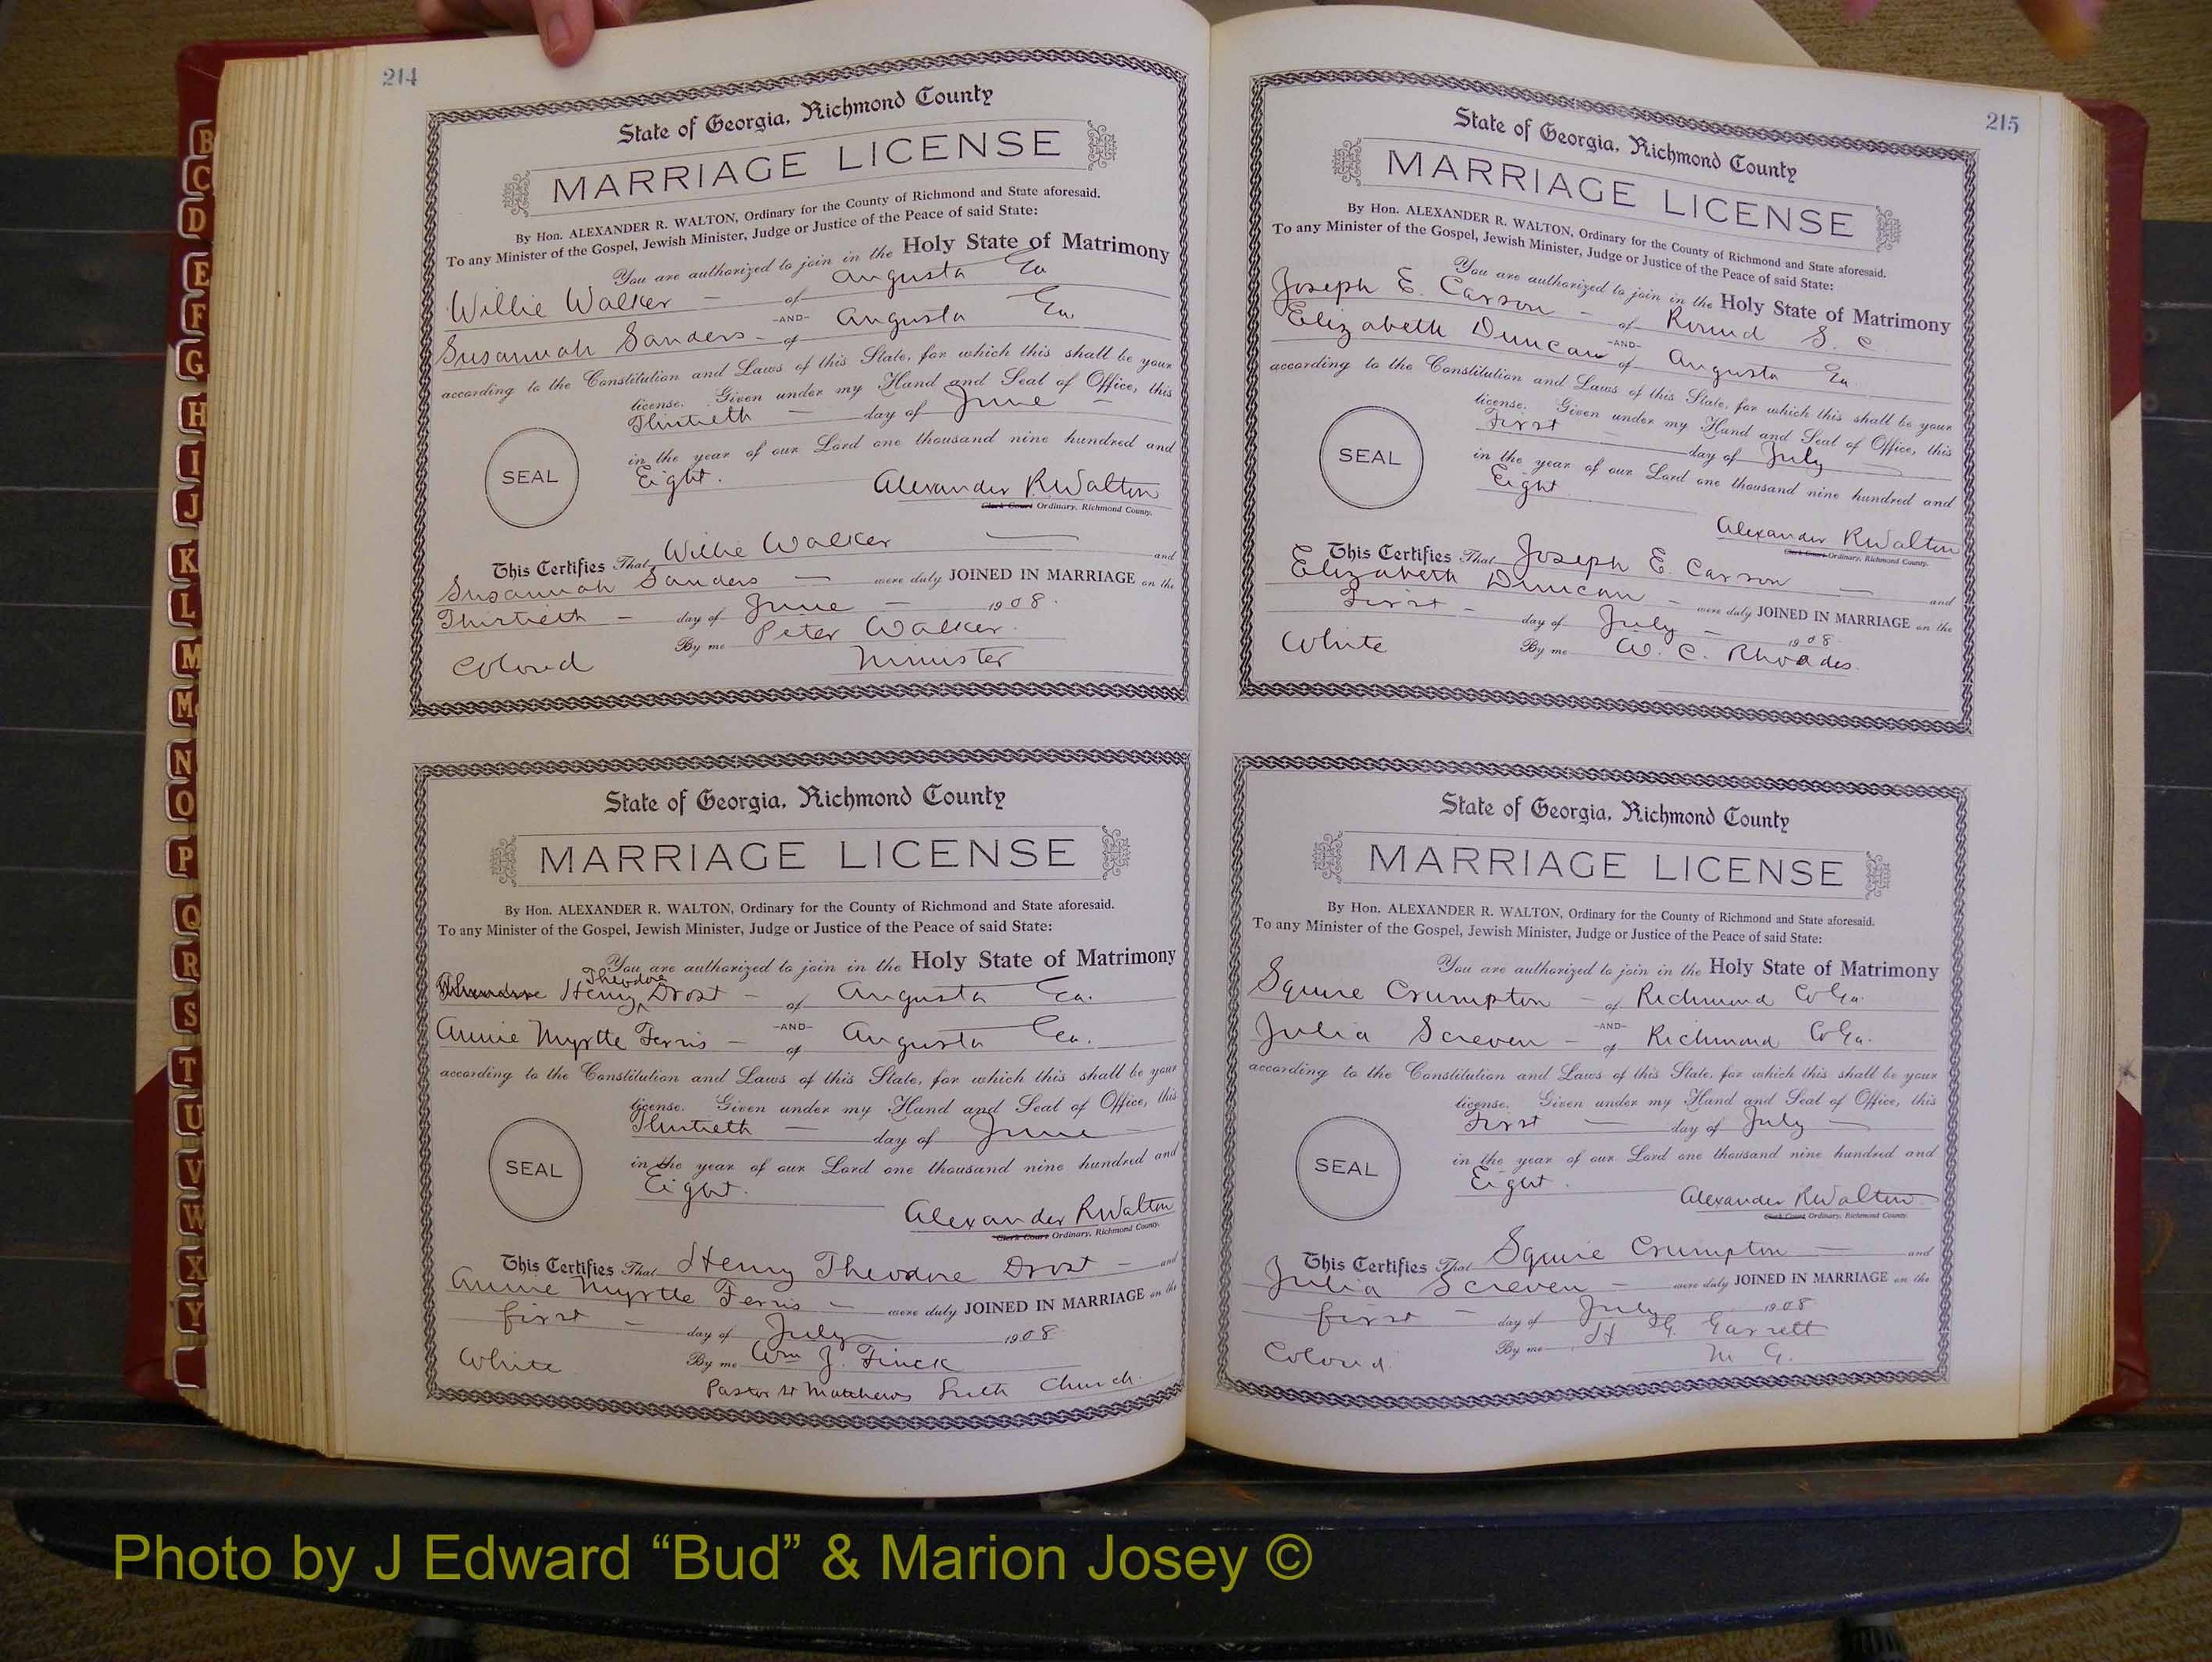 214
State of Georgia, Richmond County
MARRIAGE LICENSE
By Hon. ALEXANDER R. WALTON, Ordinary for the County of Richmond and State aforesaid.
To any Minister of the Gospel, Jewish Minister, Judge or Justice of the Peace of said State:
You are authorized to join in the Holy State of Matrimony
Willie Walker - of Augusta Ga
-AND-
Susannah Sanders - of Augusta Ga
according to the Constitution and Laws of this State, for which this shall be your
license. Given under my Hand and Seal of Office, this
Thirtieth - day of June -
in the year of our Lord one thousand nine hundred and
SEAL
Eight. Alexander R Walton
Clerk Court Ordinary, Richmond County.
This Certifies That Willie Walker - and
Susannah Sanders - were duly JOINED IN MARRIAGE on the
Thirtieth - day of June - 1908.
By me Peter Walker
Colored Minister
State of Georgia, Richmond County
MARRIAGE LICENSE
By Hon. ALEXANDER R. WALTON, Ordinary for the County of Richmond and State aforesaid.
To any Minister of the Gospel, Jewish Minister, Judge or Justice of the Peace of said State:
You are authorized to join in the Holy State of Matrimony
Theodore Henry Theodore Drost - of Augusta Ga.
-AND-
Annie Myrtle Ferris - of Augusta Ga.
according to the Constitution and Laws of this State, for which this shall be your
license. Given under my Hand and Seal of Office, this
Thirtieth - day of June -
in the year of our Lord one thousand nine hundred and
SEAL
Eight. Alexander R Walton
Clerk Court Ordinary, Richmond County.
This Certifies That Henry Theodore Drost - and
Annie Myrtle Ferris - were duly JOINED IN MARRIAGE on the
first - day of July 1908
White By me Wm J. Finck
Pastor St Matthews Luth Church.
215
State of Georgia, Richmond County
MARRIAGE LICENSE
By Hon. ALEXANDER R. WALTON, Ordinary for the County of Richmond and State aforesaid.
To any Minister of the Gospel, Jewish Minister, Judge or Justice of the Peace of said State:
You are authorized to join in the Holy State of Matrimony
Joseph E. Carson - of Round S. C.
-AND-
Elizabeth Duncan of Augusta Ga.
according to the Constitution and Laws of this State, for which this shall be your
license. Given under my Hand and Seal of Office, this
First day of July -
in the year of our Lord one thousand nine hundred and
SEAL
Eight
Alexander R Walton
Clerk Court Ordinary, Richmond County.
This Certifies That Joseph E. Carson - and
Elizabeth Duncan - were duly JOINED IN MARRIAGE on the
First - day of July - 1908
White By me W. C. Rhoades.
State of Georgia, Richmond County
MARRIAGE LICENSE
By Hon. ALEXANDER R. WALTON, Ordinary for the County of Richmond and State aforesaid.
To any Minister of the Gospel, Jewish Minister, Judge or Justice of the Peace of said State:
You are authorized to join in the Holy State of Matrimony
Squire Crumpton - of Richmond Co Ga.
-AND-
Julia Screven - of Richmond Co Ga.
according to the Constitution and Laws of this State, for which this shall be your
license. Given under my Hand and Seal of Office, this
First - day of July -
in the year of our Lord one thousand nine hundred and
SEAL
Eight. Alexander R Walton
Clerk Court Ordinary, Richmond County.
This Certifies That Squire Crumpton - and
Julia Screven - were duly JOINED IN MARRIAGE on the
first - day of July 1908
By me H G. Garrett
Colored M G.
B
C
D
E
F
G
H
I
J
K
L
M
Mc
N
O
P
Q
R
S
T
U
V
W
X
Y
Photo by J Edward “Bud” & Marion Josey ©